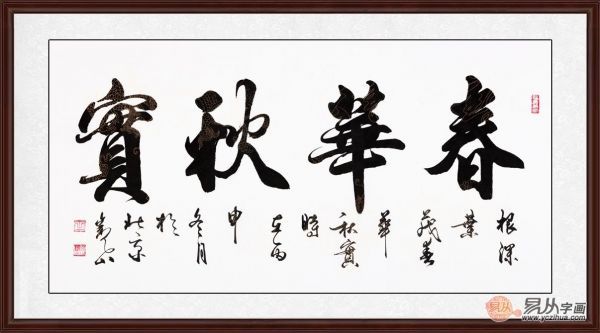 春華秋實
根深
葉
茂春
華
秋實
時
在丙
申
冬月
於
北京
易从
易从字画
www.yczihua.com